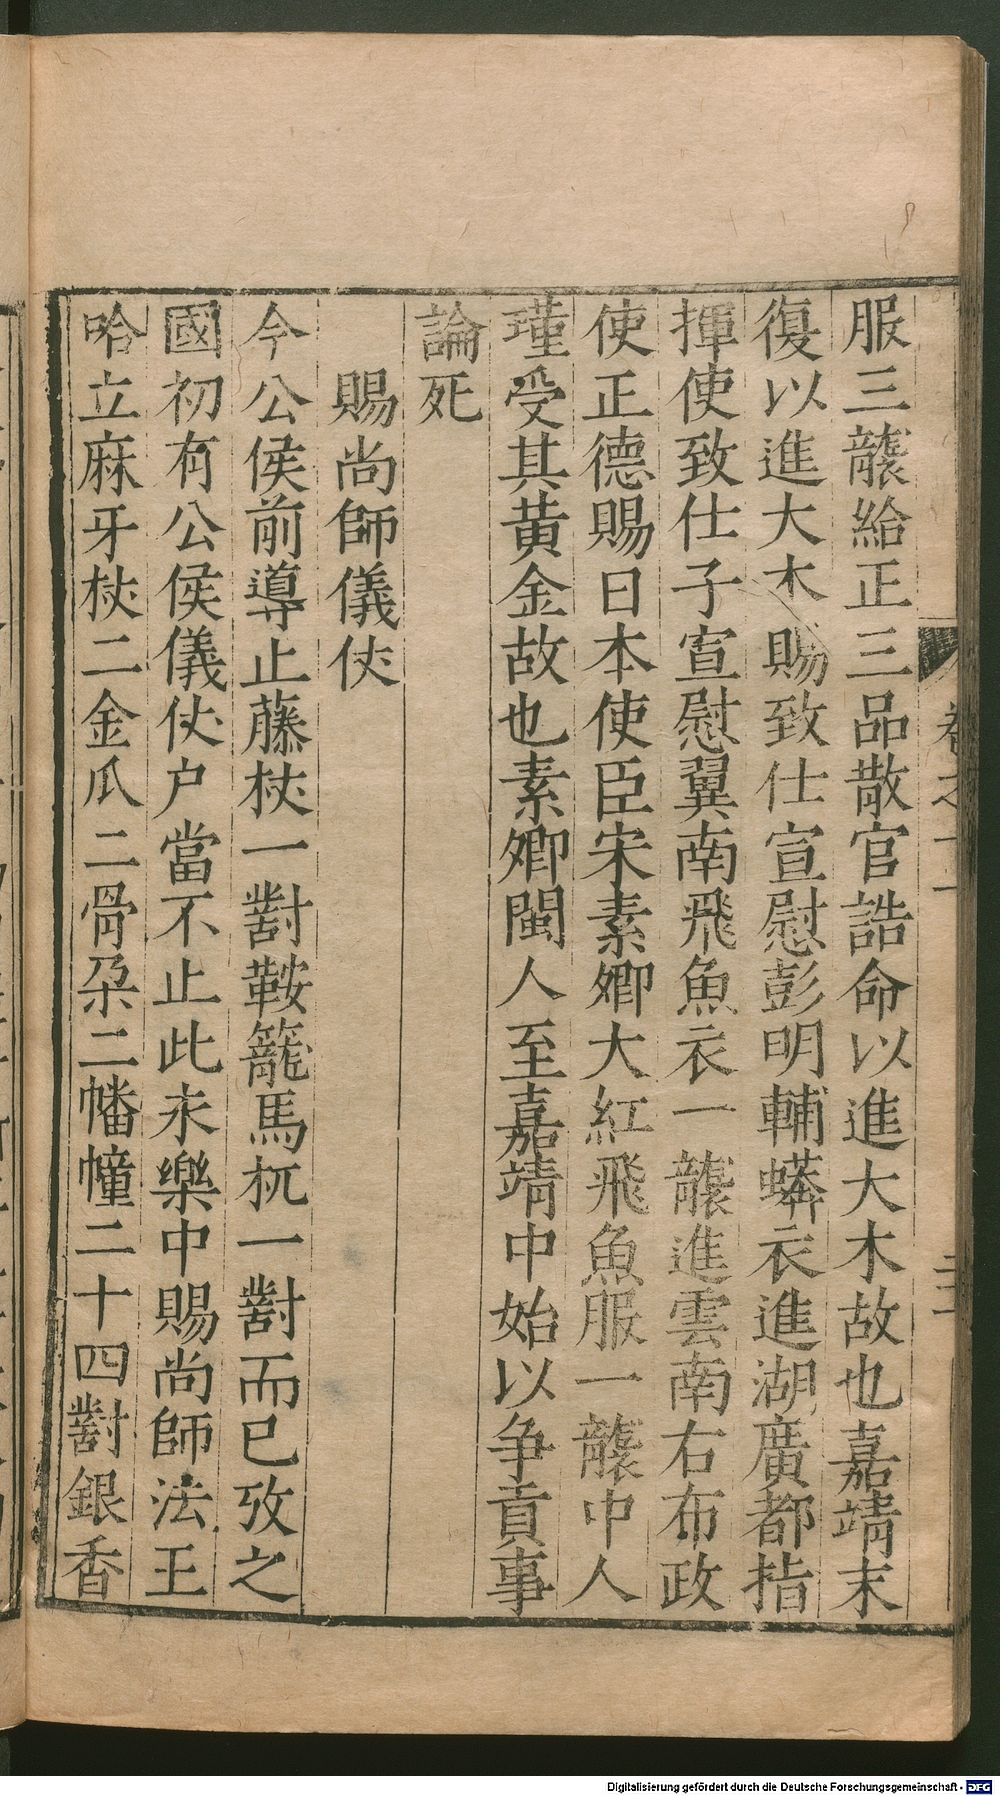 服三襲給正三品散官誥命以進大木故也嘉靖末
復以進大木賜致仕宣慰彭明輔蟒衣進湖廣都指
揮使致仕子宣慰翼南飛魚衣一襲進雲南右布政
使正德賜日本使臣宋素卿大紅飛魚服一襲中人
瑾受其黄金故也素卿閩人至嘉靖中始以争貢事
論死
賜尚師儀仗
今公侯前導止藤杖一對鞍籠馬杌一對而已攷之
國初有公侯儀仗户當不止此永樂中賜尚師法王
哈立麻牙杖二金瓜二骨朶二幡幢二十四對銀香
Digitalisierung gefördert durch die Deutsche Forschungsgemeinschaft - DFG